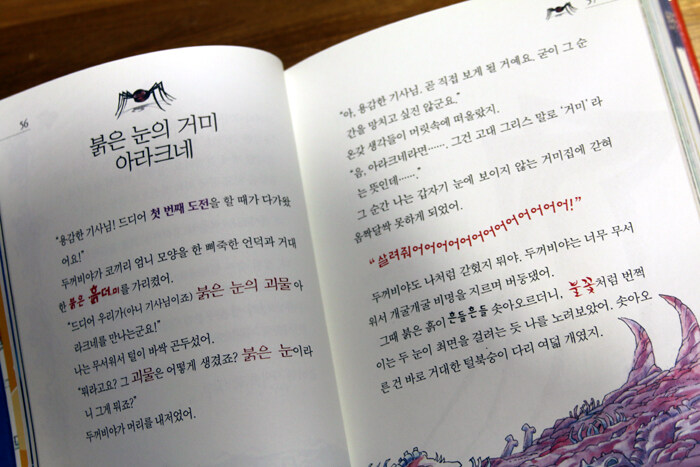 36
붉은 눈의 거미
아라크네
"용감한 기사님! 드디어 첫 번째 도전을 할 때가 다가왔
어요!"
두꺼비야가 코끼리 엄니 모양을 한 뾰족한 언덕과 거대
한 붉은 흙더미를 가리켰어.
"드디어 우리가(아니 기사님이죠) 붉은 눈의 괴물 아
라크네를 만나는군요!"
나는 무서워서 털이 바싹 곤두섰어.
"뭐라고요? 그 괴물은 어떻게 생겼죠? 붉은 눈이라
니 그게 뭐죠?"
두꺼비야가 머리를 내저었어.
37
"아, 용감한 기사님. 곧 직접 보게 될 거예요. 굳이 그 순
간을 망치고 싶진 않군요."
온갖 생각들이 머릿속에 떠올랐지.
"음, 아라크네라면……. 그건 고대 그리스 말로 '거미'라
는 뜻인데……."
그 순간 나는 갑자기 눈에 보이지 않는 거미집에 갇혀
옴짝달싹 못하게 되었어.
"살려줘어어어어어어어어어어어어어!"
두꺼비야도 나처럼 갇혔지 뭐야. 두꺼비야는 너무 무서
워서 개굴개굴 비명을 지르며 버둥댔어.
그때 붉은 흙이 흔들흔들 솟아오르더니, 불꽃처럼 번쩍
이는 두 눈이 최면을 걸려는 듯 나를 노려보았어. 솟아오
른 건 바로 거대한 털북숭이 다리 여덟 개였지.